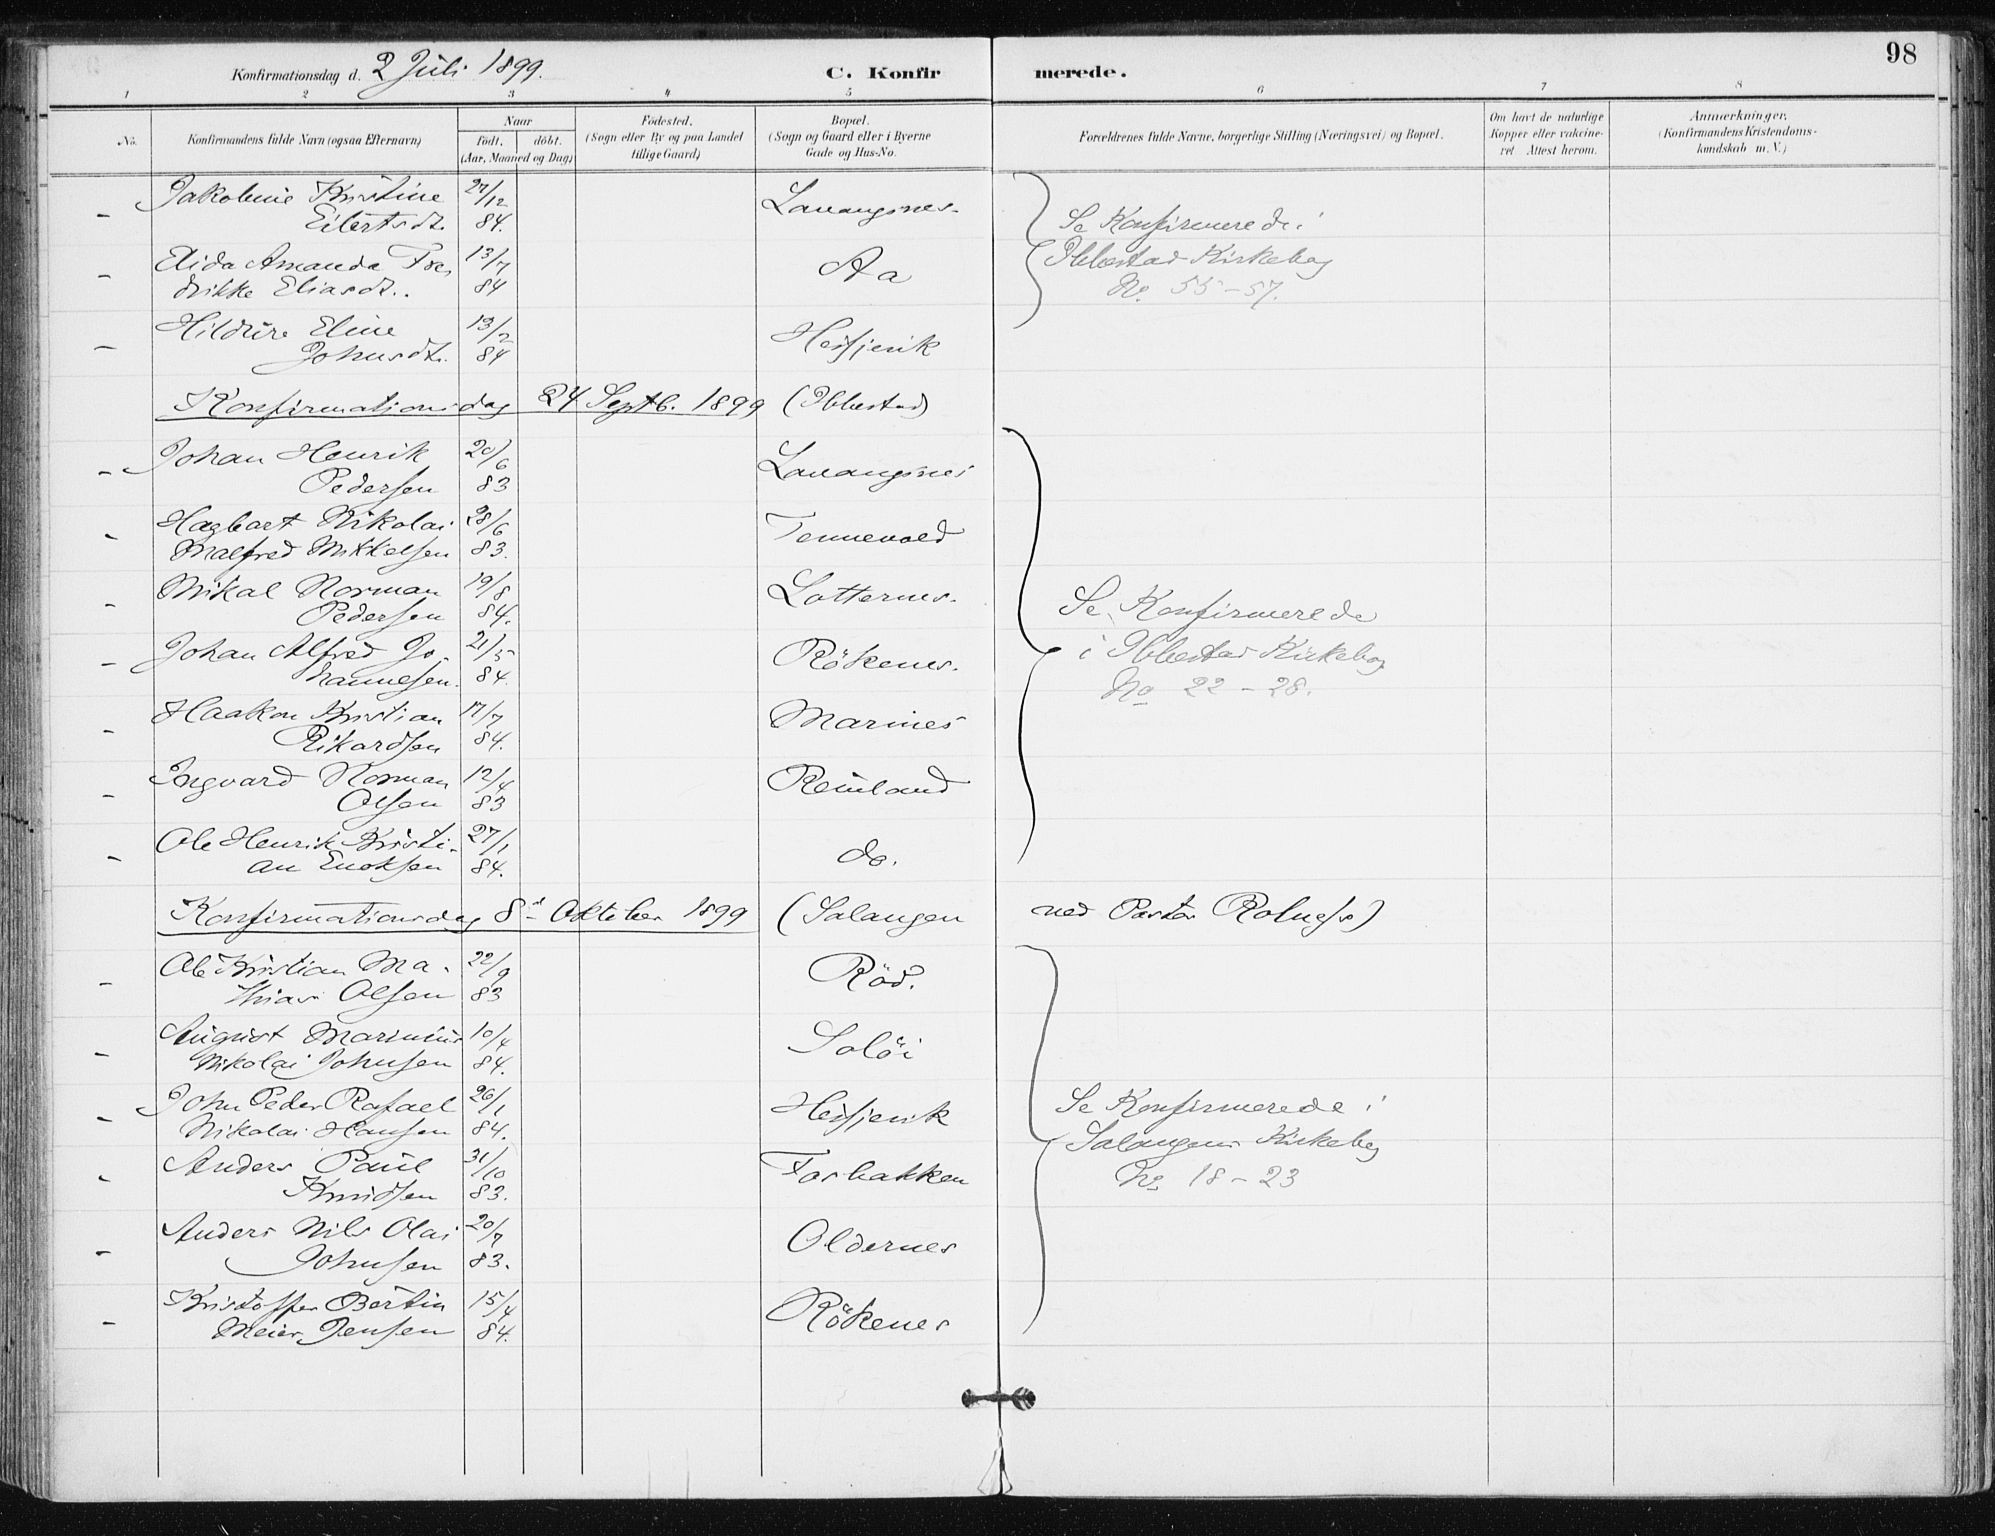 98
Konfirmationsdag d. 2 Juli 1899.
C. Konfirmerede.
1 2 3 4 5 6 7 8
No.
Konfirmandens fulde Navn (ogsaa Efternavn)
Naar
født, døbt.
(Aar, Maaned og Dag)
Fødested.
(Sogn eller By og paa Landet
tillige Gaard)
Bopæl.
(Sogn og Gaard eller i Byerne
Gade og Hus-No.
Forældrenes fulde Navne, borgerlige Stilling (Næringsvei) og Bopæl.
Om havt de naturlige
Kopper eller vakcine-
ret Attest herom.
Anmærkninger,
(Konfirmandens Kristendoms-
kundskab m. V.)
- Jakobine Kristine 27/12 Lavangsnes.
Eilertsdt. 84.
- Elida Amanda Fre- 13/7 Aa
drikke Eliasdt. 84
- Hildure Eline 13/2 Hesjevik
Johnsdt. 84
Se Konfirmerede i
Ibbestad Kirkebog
No. 55-57.
Konfirmationsdag 24 Septb. 1899 (Ibbestad)
- Johan Henrik 20/6 Lavangsnes
Pedersen 83
- Hagbart Nikolai 28/6 Tennevold
Malfred Mikkelsen 83.
- Mikal Norman 19/8 Lotternes.
Pedersen 84.
- Johan Alfred Jo- 21/5 Rökenes.
hannesen. 84.
- Haakon Kristian 17/7 Marines
Rikardsen 84.
- Ingvard Norman 12/4 Reinland
Olsen 83
- Ole Henrik Kristi- 27/1 do.
an Enoksen 84.
Se Konfirmerede
i Ibbestad Kirkebog
No 22-28.
Konfirmationsdag 8d Oktober 1899 (Salangen ved Pastor)
- Ole Kristian Ma- 22/9 Röd.
thias Olsen 83
- August Marinius 10/4 Solöi
Nikolai Johnsen 84.
- John Peder Rafael 26/1 Hesjevik
Nikolai Hansen 84.
- Anders Paul 31/10 Forbakken
Knudsen 83.
- Anders Nils Olai 20/7 Oldernes
Johnsen 83.
- Kristoffer Bertin 15/4 Rökenes
Meier Jensen 84.
Se Konfirmerede i
Salangens Kirkebog
No 18-23